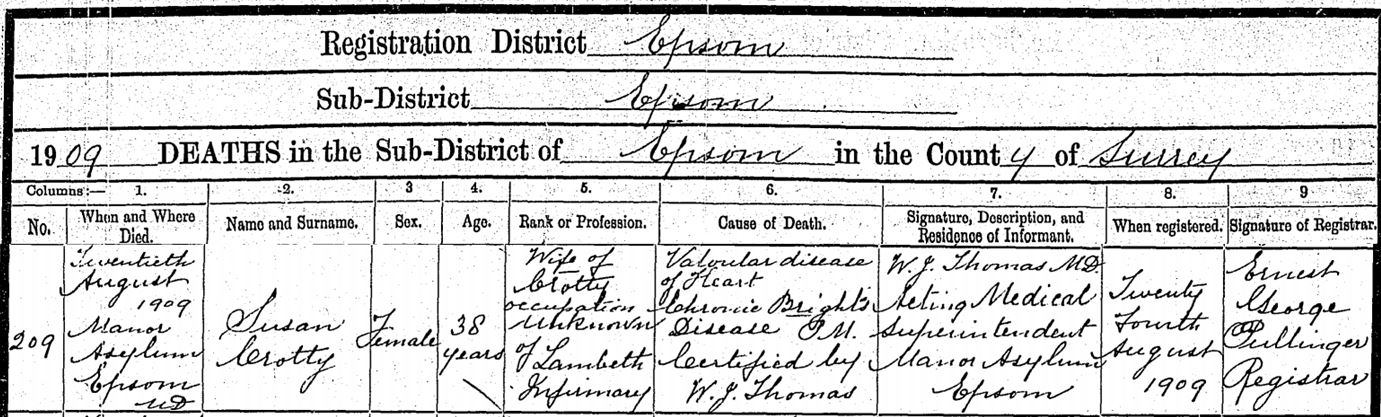 Registration District Epsom
Sub-District Epsom
1909 DEATHS in the Sub-District of Epsom in the County of Surrey
Columns:— 1. 2. 3 4. 5. 6. 7. 8. 9
No. When and Where Died. Name and Surname. Sex. Age. Rank or Profession. Cause of Death. Signature, Description, and Residence of Informant. When registered. Signature of Registrar.
209
Twentieth
August
1909
Manor
Asylum
Epsom
UD
Susan
Crotty
Female
38
years
Wife of
Crotty
occupation
unknown
of Lambeth
Infirmary
Valvular disease
of Heart
Chronic Bright's
Disease P.M.
Certified by
W. J. Thomas
W. J. Thomas M.D.
Acting Medical
Superintendent
Manor Asylum
Epsom
Twenty
Fourth
August
1909
Ernest
George
Pullinger
Registrar